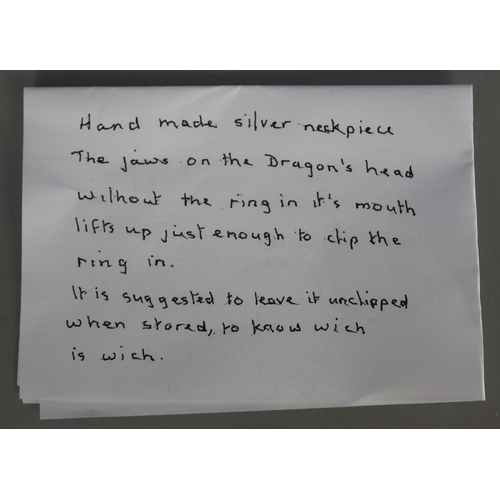 Hand made silver neckpiece
The jaws on the Dragon's head
without the ring in it's mouth
lifts up just enough to clip the
ring in.
It is suggested to leave it unclipped
when stored, to know wich
is wich.